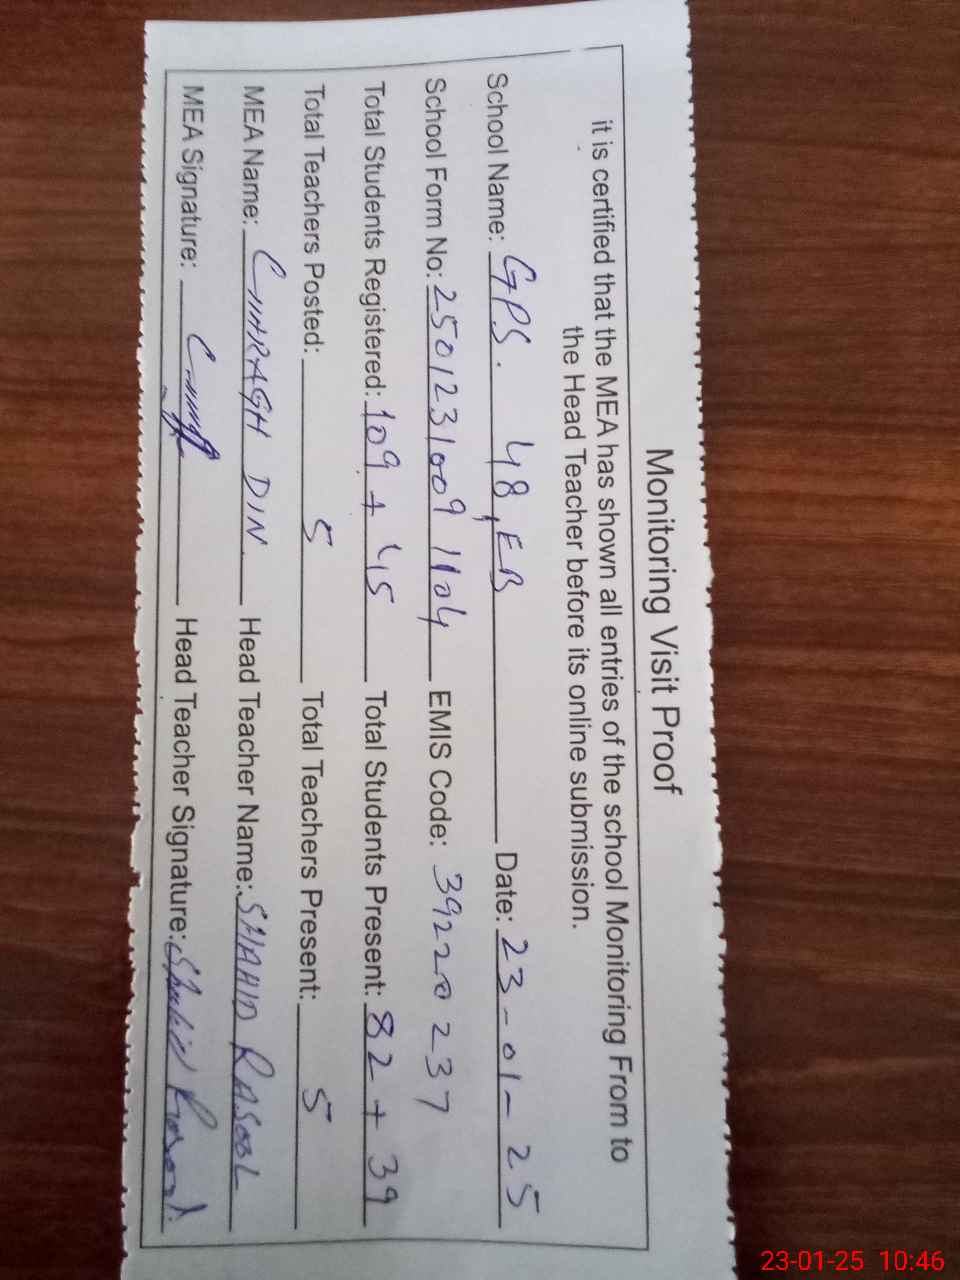 Monitoring Visit Proof
it is certified that the MEA has shown all entries of the school Monitoring From to
the Head Teacher before its online submission.
School Name: GPS. 48,EB Date: 23-01-25
School Form No: 250123 1009 1104 EMIS Code: 39220237
Total Students Registered: 109 + 45 Total Students Present: 82 + 39
Total Teachers Posted: 5 Total Teachers Present: 5
MEA Name: CHHRAGH DIN Head Teacher Name: SHAHID RASOOL
MEA Signature: Head Teacher Signature: Shahid Rasool
23-01-25 10:46